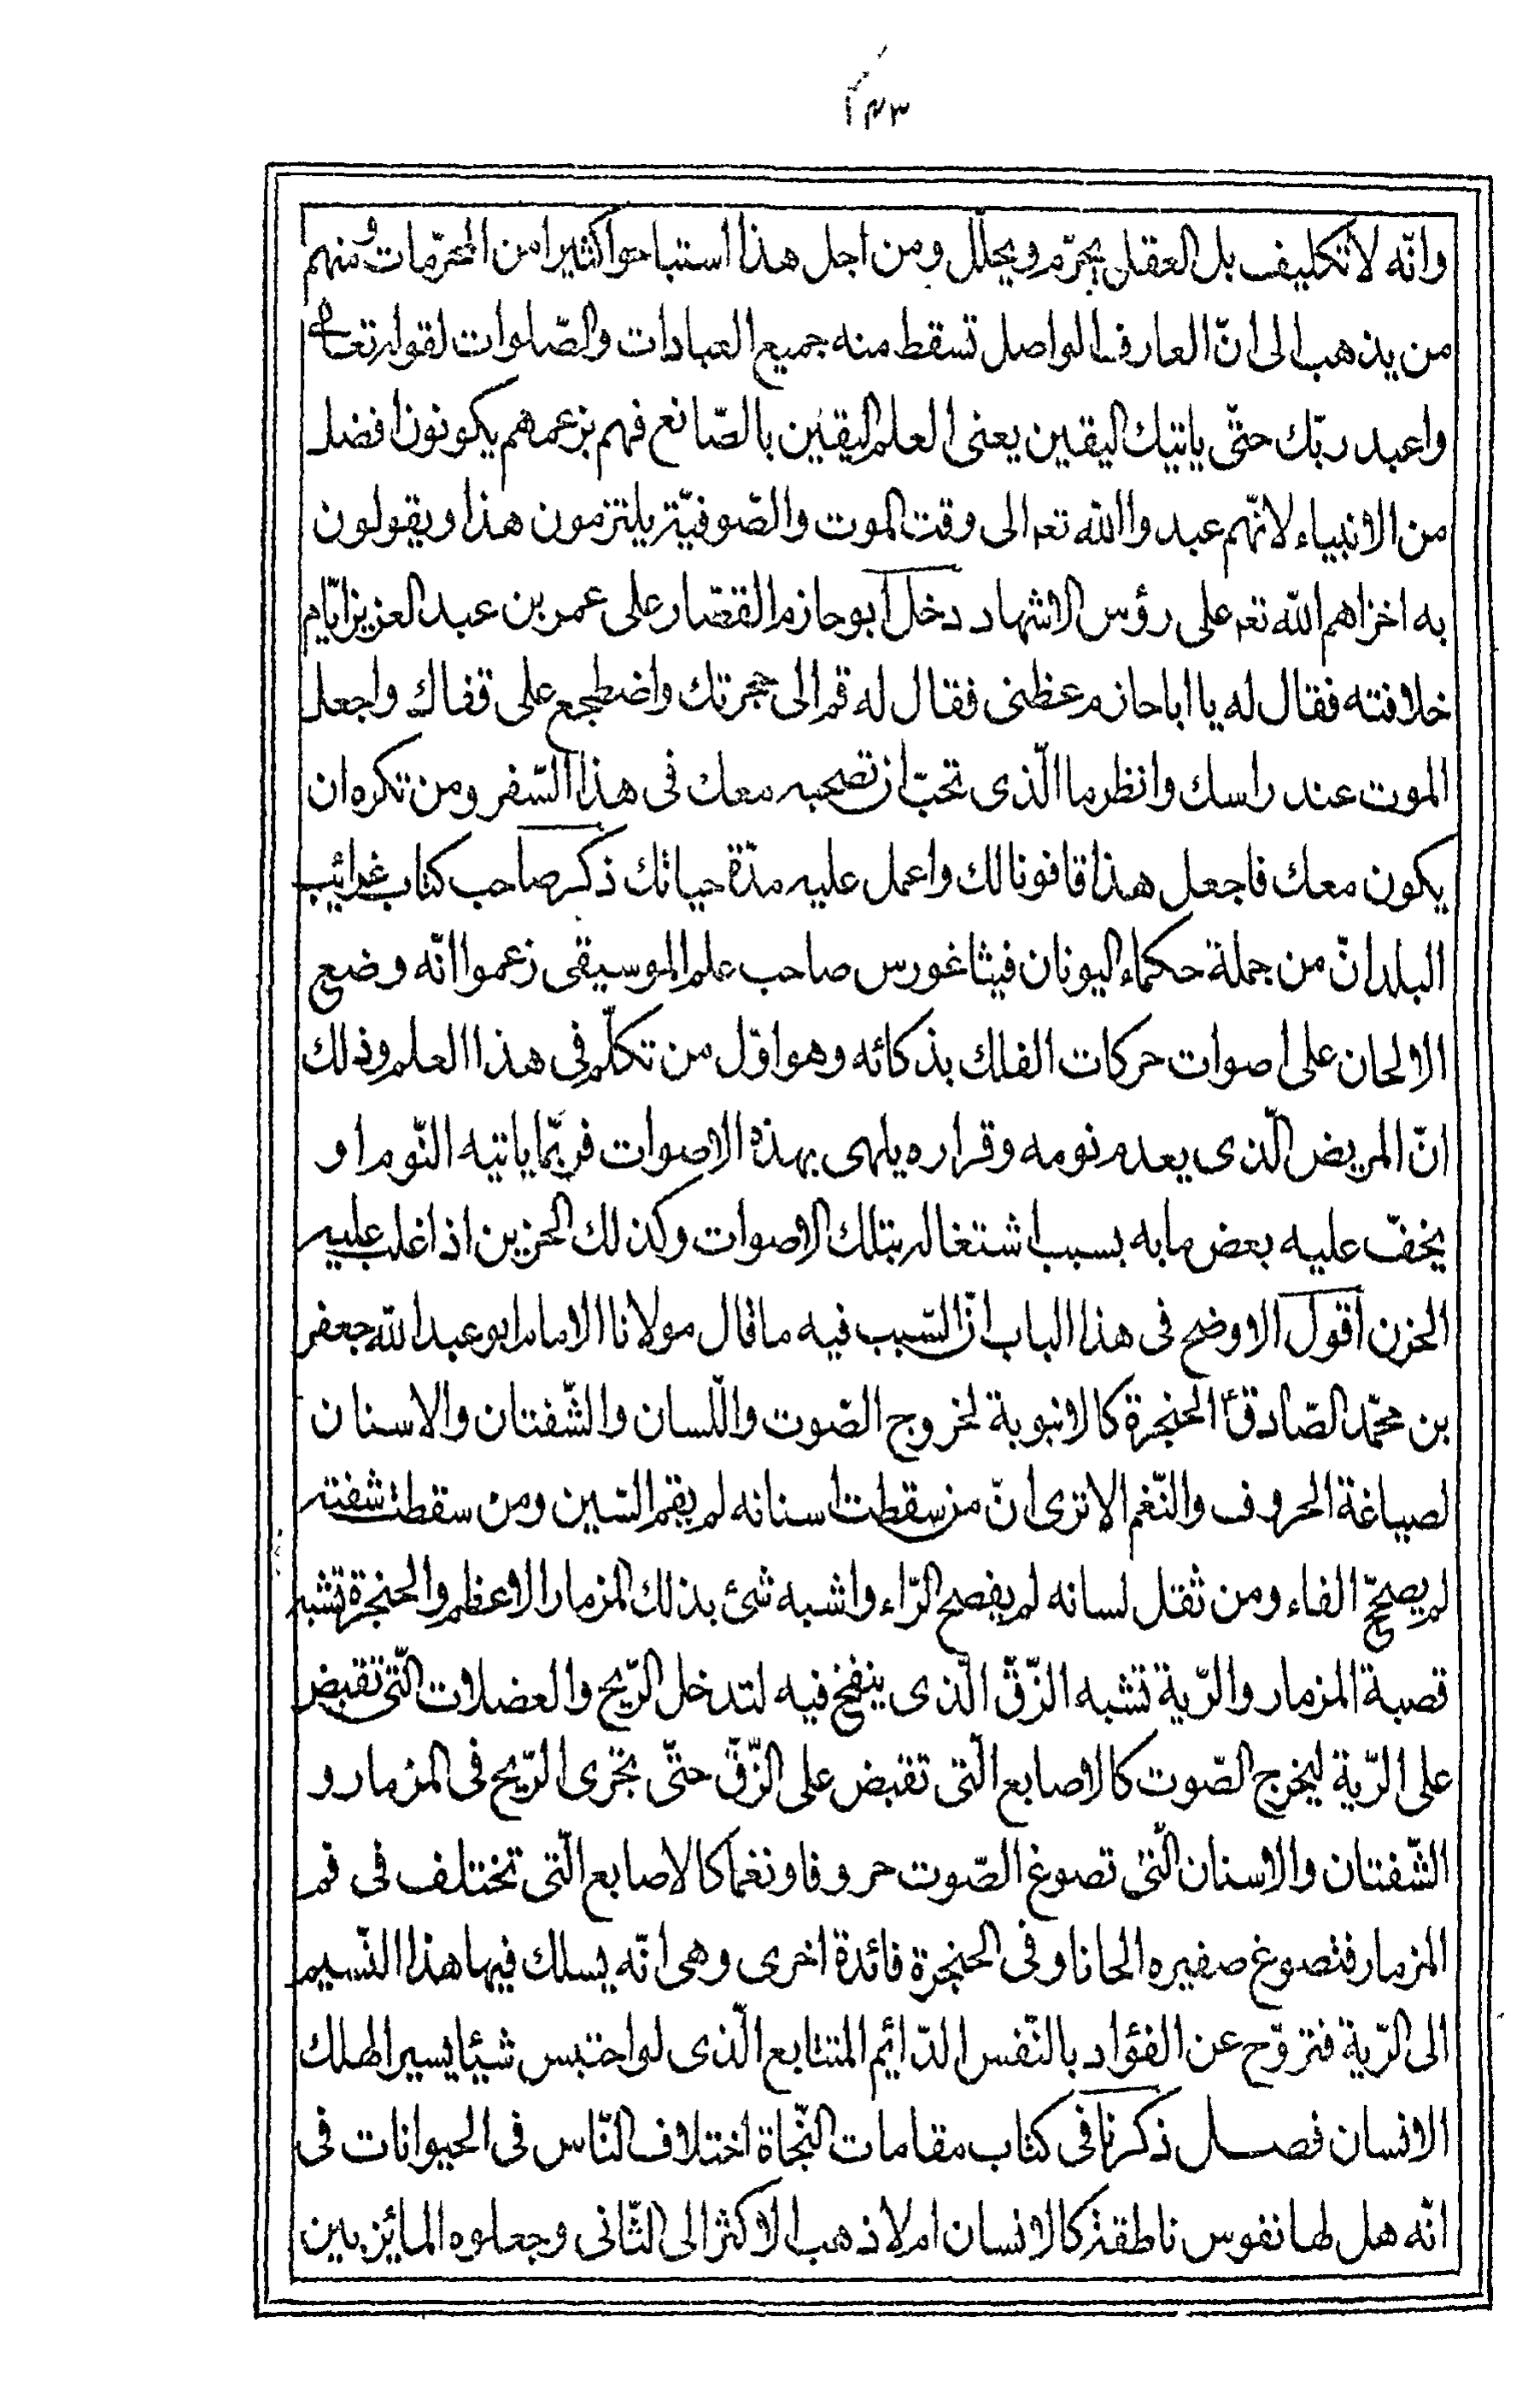 ١٤٣
وانّه لا تكليف بل العقل يحرّم ويحلّل ومن اجل هذا استباحوا كثيرا من المحرّمات ومنهم
من يذهب الى انّ العارف الواصل تسقط منه جميع العبادات والصّلوات لقوله تعالى
واعبد ربّك حتّى ياتيك اليقين يعنى العلم اليقين بالصّانع فهم بزعمهم يكونون افضل
من الانبياء لانّهم عبدوا اللّه تعه الى وقت الموت والصّوفيّة يلتزمون هذا ويقولون
به اخزاهم اللّه تعه على رؤس الاشهاد دخل ابو حازم القصّار على عمر بن عبد العزيز ايّام
خلافته فقال له يا ابا حازم عظنى فقال له قم الى حجرتك واضطجع على قفاك واجعل
الموت عند راسك وانظر ما الّذى تحبّ ان تصحبه معك فى هذا السّفر ومن تكره ان
يكون معك فاجعل هذا قانونا لك واعمل عليه مدّة حياتك ذكر صاحب كتاب غرائب
البلدان من جملة حكماء اليونان فيثاغورس صاحب علم الموسيقى زعموا انّه وضع
الالحان على اصوات حركات الفلك بذكائه وهو اوّل من تكلّم فى هذا العلم وذلك
انّ المريض الّذى يعدم نومه وقراره يلهى بهذه الاصوات فربّما ياتيه النّوم او
يخفّ عليه بعض ما به بسبب اشتغاله بتلك الاصوات وكذلك الحزين اذا غلب عليه
الحزن اقول الاوضح فى هذا الباب انّ السّبب فيه ما قال مولانا الامام ابو عبد اللّه جعفر
بن محمّد الصّادق ع الحنجرة كالانبوبة لخروج الصّوت واللّسان والشّفتان والاسنان
لصياغة الحروف والنّغم الا ترى انّ من سقطت اسنانه لم يقم السّين ومن سقطت شفته
لم يصحّح الفاء ومن ثقل لسانه لم يفصح الرّاء واشبه شئ بذلك المزمار الاعظم والحنجرة تشبه
قصبة المزمار والرّية تشبه الزّقّ الّذى ينفخ فيه لتدخل الرّيح والعضلات الّتى تقبض
على الرّية ليخرج الصّوت كالاصابع الّتى تقبض على الزّقّ حتّى تجرى الرّيح فى المزمار و
الشّفتان والاسنان الّتى تصوغ الصّوت حروفا ونغما كالاصابع الّتى تختلف فى فم
المزمار فتصوغ صفيره الحانا وفى الحنجرة فائدة اخرى وهى انّه يسلك فيها هذا النّسيم
الى الرّية فتروّح عن الفؤاد بالنّفس الدّائيم المتتابع الّذى لو احتبس شيئا يسيرا لهلك
الانسان فصل ذكرنا فى كتاب مقامات النّجاة اختلاف النّاس فى الحيوانات فى
انّه هل لها نفوس ناطقة كالانسان ام لا ذهب الاكثر الى الثّانى وجعلوه المائز بين